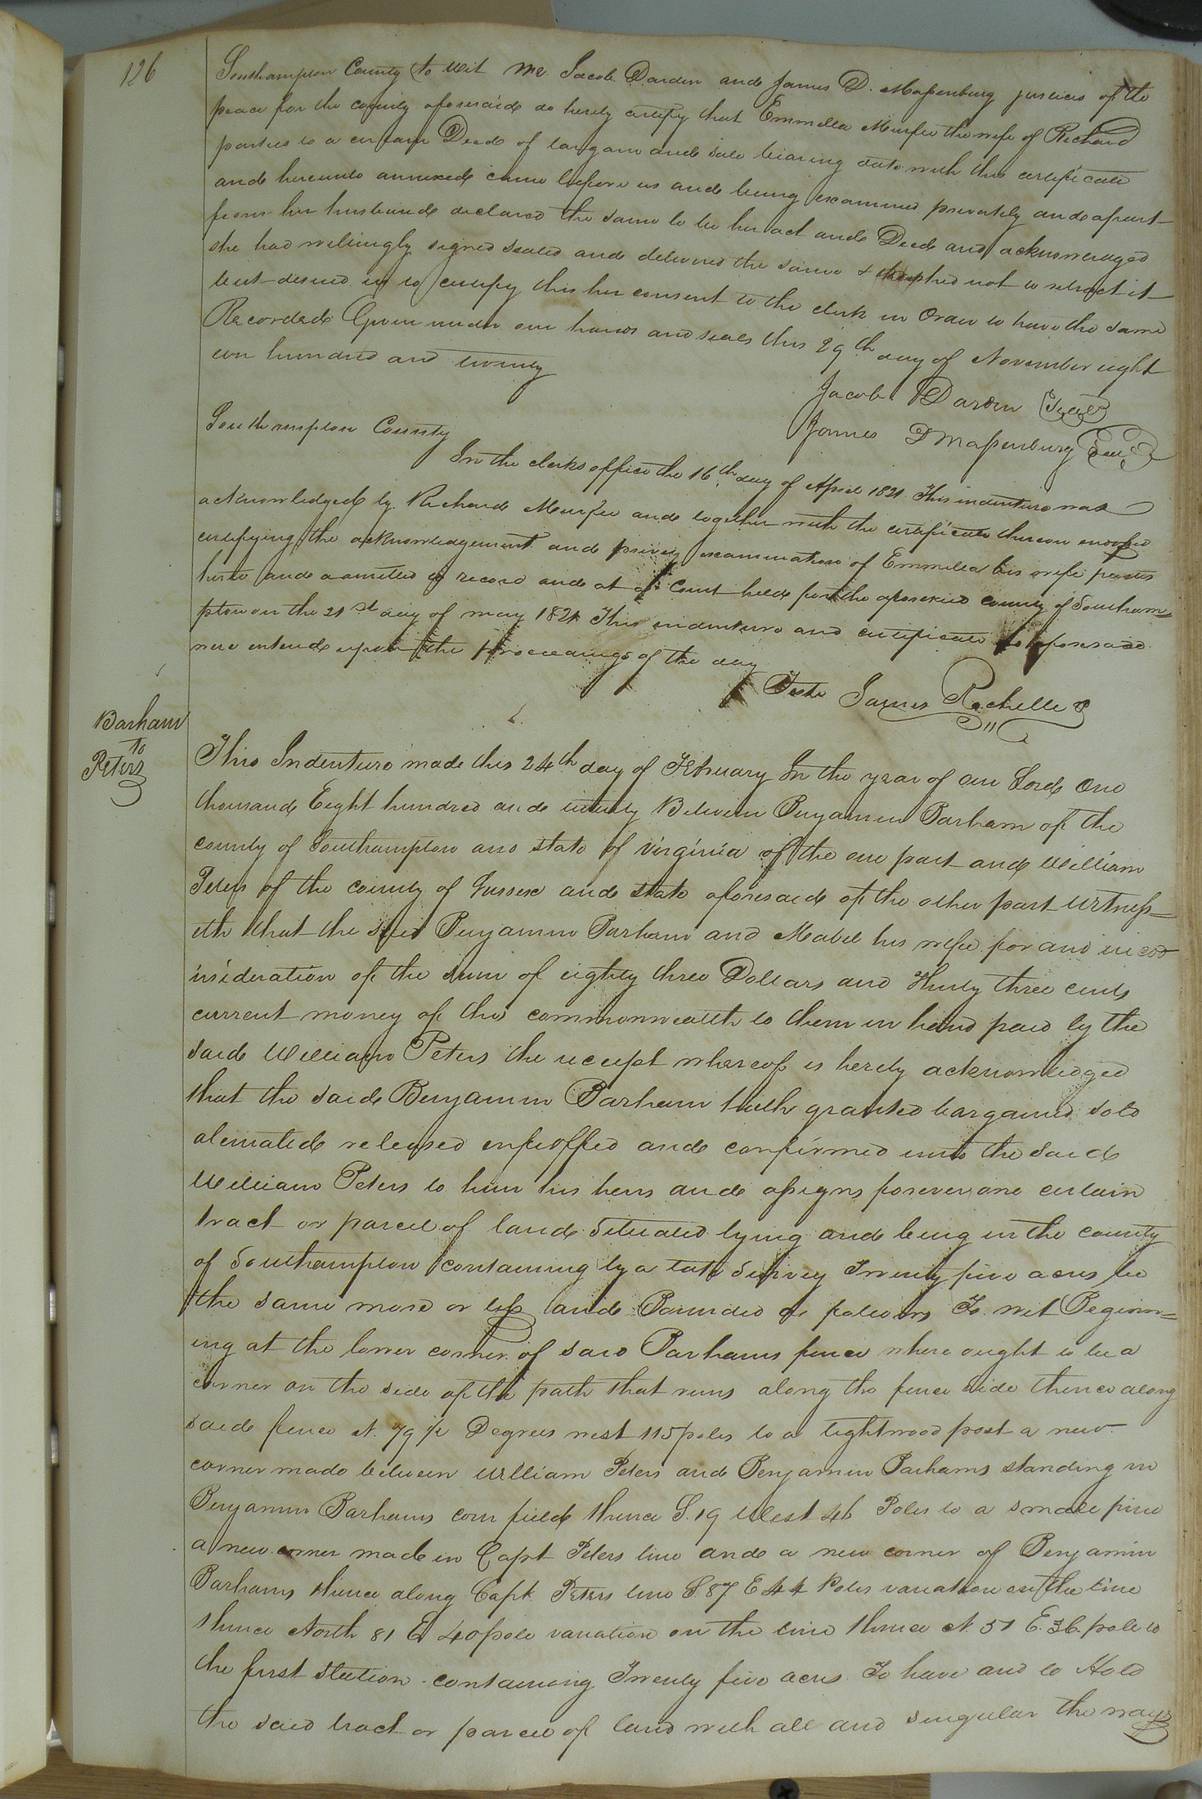 126
Southampton County to wit We Jacob Darden and James D. Massenburg justices of the
peace for the county aforesaid do hereby certify that Emmilla Murfee the wife of Richard
parties to a certain Deed of bargain and sale bearing date with this certificate
and hereunto annexed came before us and being examined privately and apart
from her husband declared the same to be her act and Deed and acknowledged
she had willingly signed sealed and delivered the same & wished not to retract it
but desired us to certify this her consent to the clerk in Order to have the same
Recorded Given under our hands and seals this 29th day of November eight
een hundred and twenty
Jacob Darden Seal
James D Massenburg Seal
Southampton County
In the clerks office the 16th day of April 1821 This indenture was
acknowledged by Richard Murfee and together with the certificate thereon endorsed
certifying the acknowledgement and privey examination of Emmilla his wife parties
hereto and admitted to record and at a Court held for the aforesaid county of Southam=
pton on the 21st day of may 1821 This indenture and certificate as aforesaid
were entered upon the proceedings of the day
Teste James Rochelle
Barham
to
Peters
This Indenture made this 24th day of February In the year of our Lord One
thousand Eight hundred and twenty Between Benjamin Barham of the
county of Southampton and state of virginia of the one part and William
Peters of the county of Sussex and state aforesaid of the other part witness=
eth that the said Benjamin Barham and Mabel his wife for and in con
insideration of the sum of eighty three Dollars and Thirty three cents
current money of this commonwealth to them in hand paid by the
said William Peters the receipt whereof is hereby acknowledged
that the said Benjamin Barham hath granted bargained sold
alienated released enfeoffed and confirmed unto the said
William Peters to him his heirs and assigns forever one certain
tract or parcel of land Situated lying and being in the county
of Southampton containing by a late Survey Twenty five acres be
the same more or less and Bounded as follows To wit Beginn=
ing at the lower corner of said Barhams fence where ought to be a
corner on the side of the path that runs along the fence side thence along
said fence N. 79 1/2 Degrees west 115 poles to a lightwood post a new
corner made between William Peters and Benjamin Barhams standing in
Benjamin Barhams corn field thence S. 19 West 46 Poles to a small pine
a new corner made in Capt Peters line and a new corner of Benjamin
Barhams thence along Capt Peters line S 87 E 44 Poles variation on the line
thence North 81 E 40 pole variation on the line thence N. 51 E. 36 pole to
the first station containing Twenty five acres To have and to Hold
the said tract or parcel of land with all and singular the ways